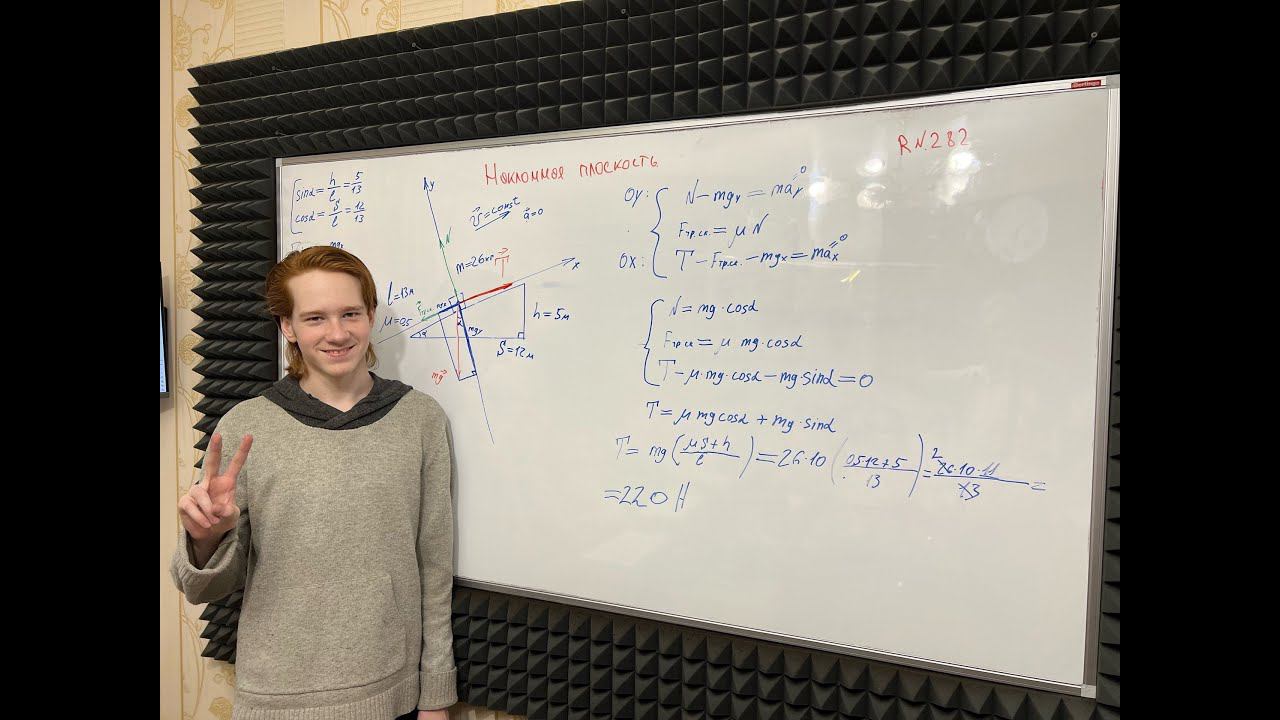 Наклонная плоскость
R N.282
sinα = h/l = 5/13
cosα = S/l = 12/13
mgx
y
v⃗ = const
a⃗ = 0
N⃗
m = 26кг
T⃗
x
l = 13м
μ = 0,5
Fтр.ск.
mgx
α
α
mgy
h = 5м
S = 12м
mg⃗
OY: N - mgy = may = 0
Fтр.ск. = μN
OX: T - Fтр.ск. - mgx = max = 0
N = mg·cosα
Fтр.ск = μ mg·cosα
T - μ·mg·cosα - mg·sinα = 0
T = μ mg cosα + mg·sinα
T = mg (μS+h / l) = 26·10 (0,5·12+5 / 13) = 2 26·10·11 / 13 =
= 220 Н